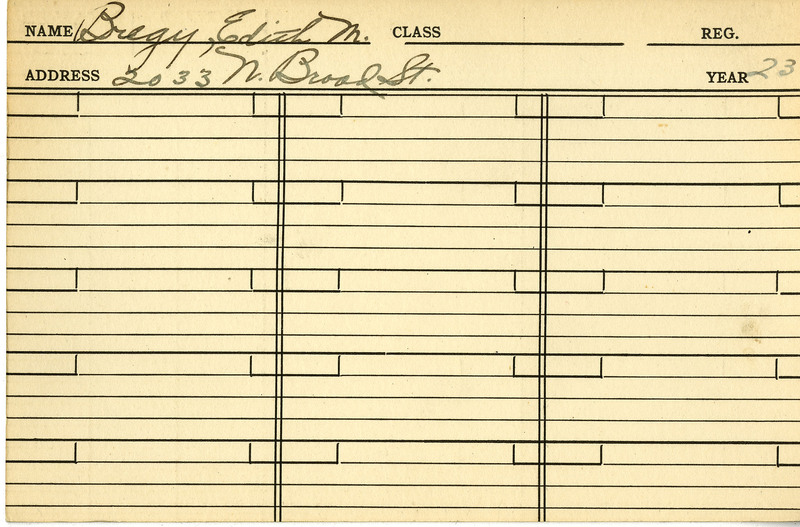 NAME Bregy, Edith M. CLASS REG.
ADDRESS 2033 N. Broad St. YEAR 23